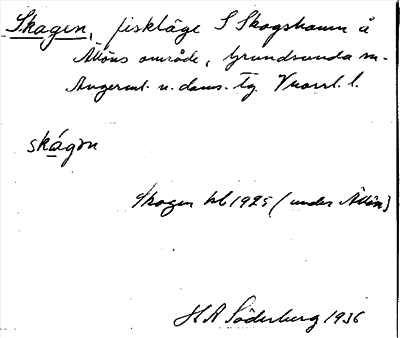 Skagen, fiskläge S Skogshamn å
Alnöns område, Grundsunda sn.
Ångerml. n. doms. tg. Vnorrl. l.
skágən
Skagen kb 1925 (under Alnön)
H A Söderberg 1936